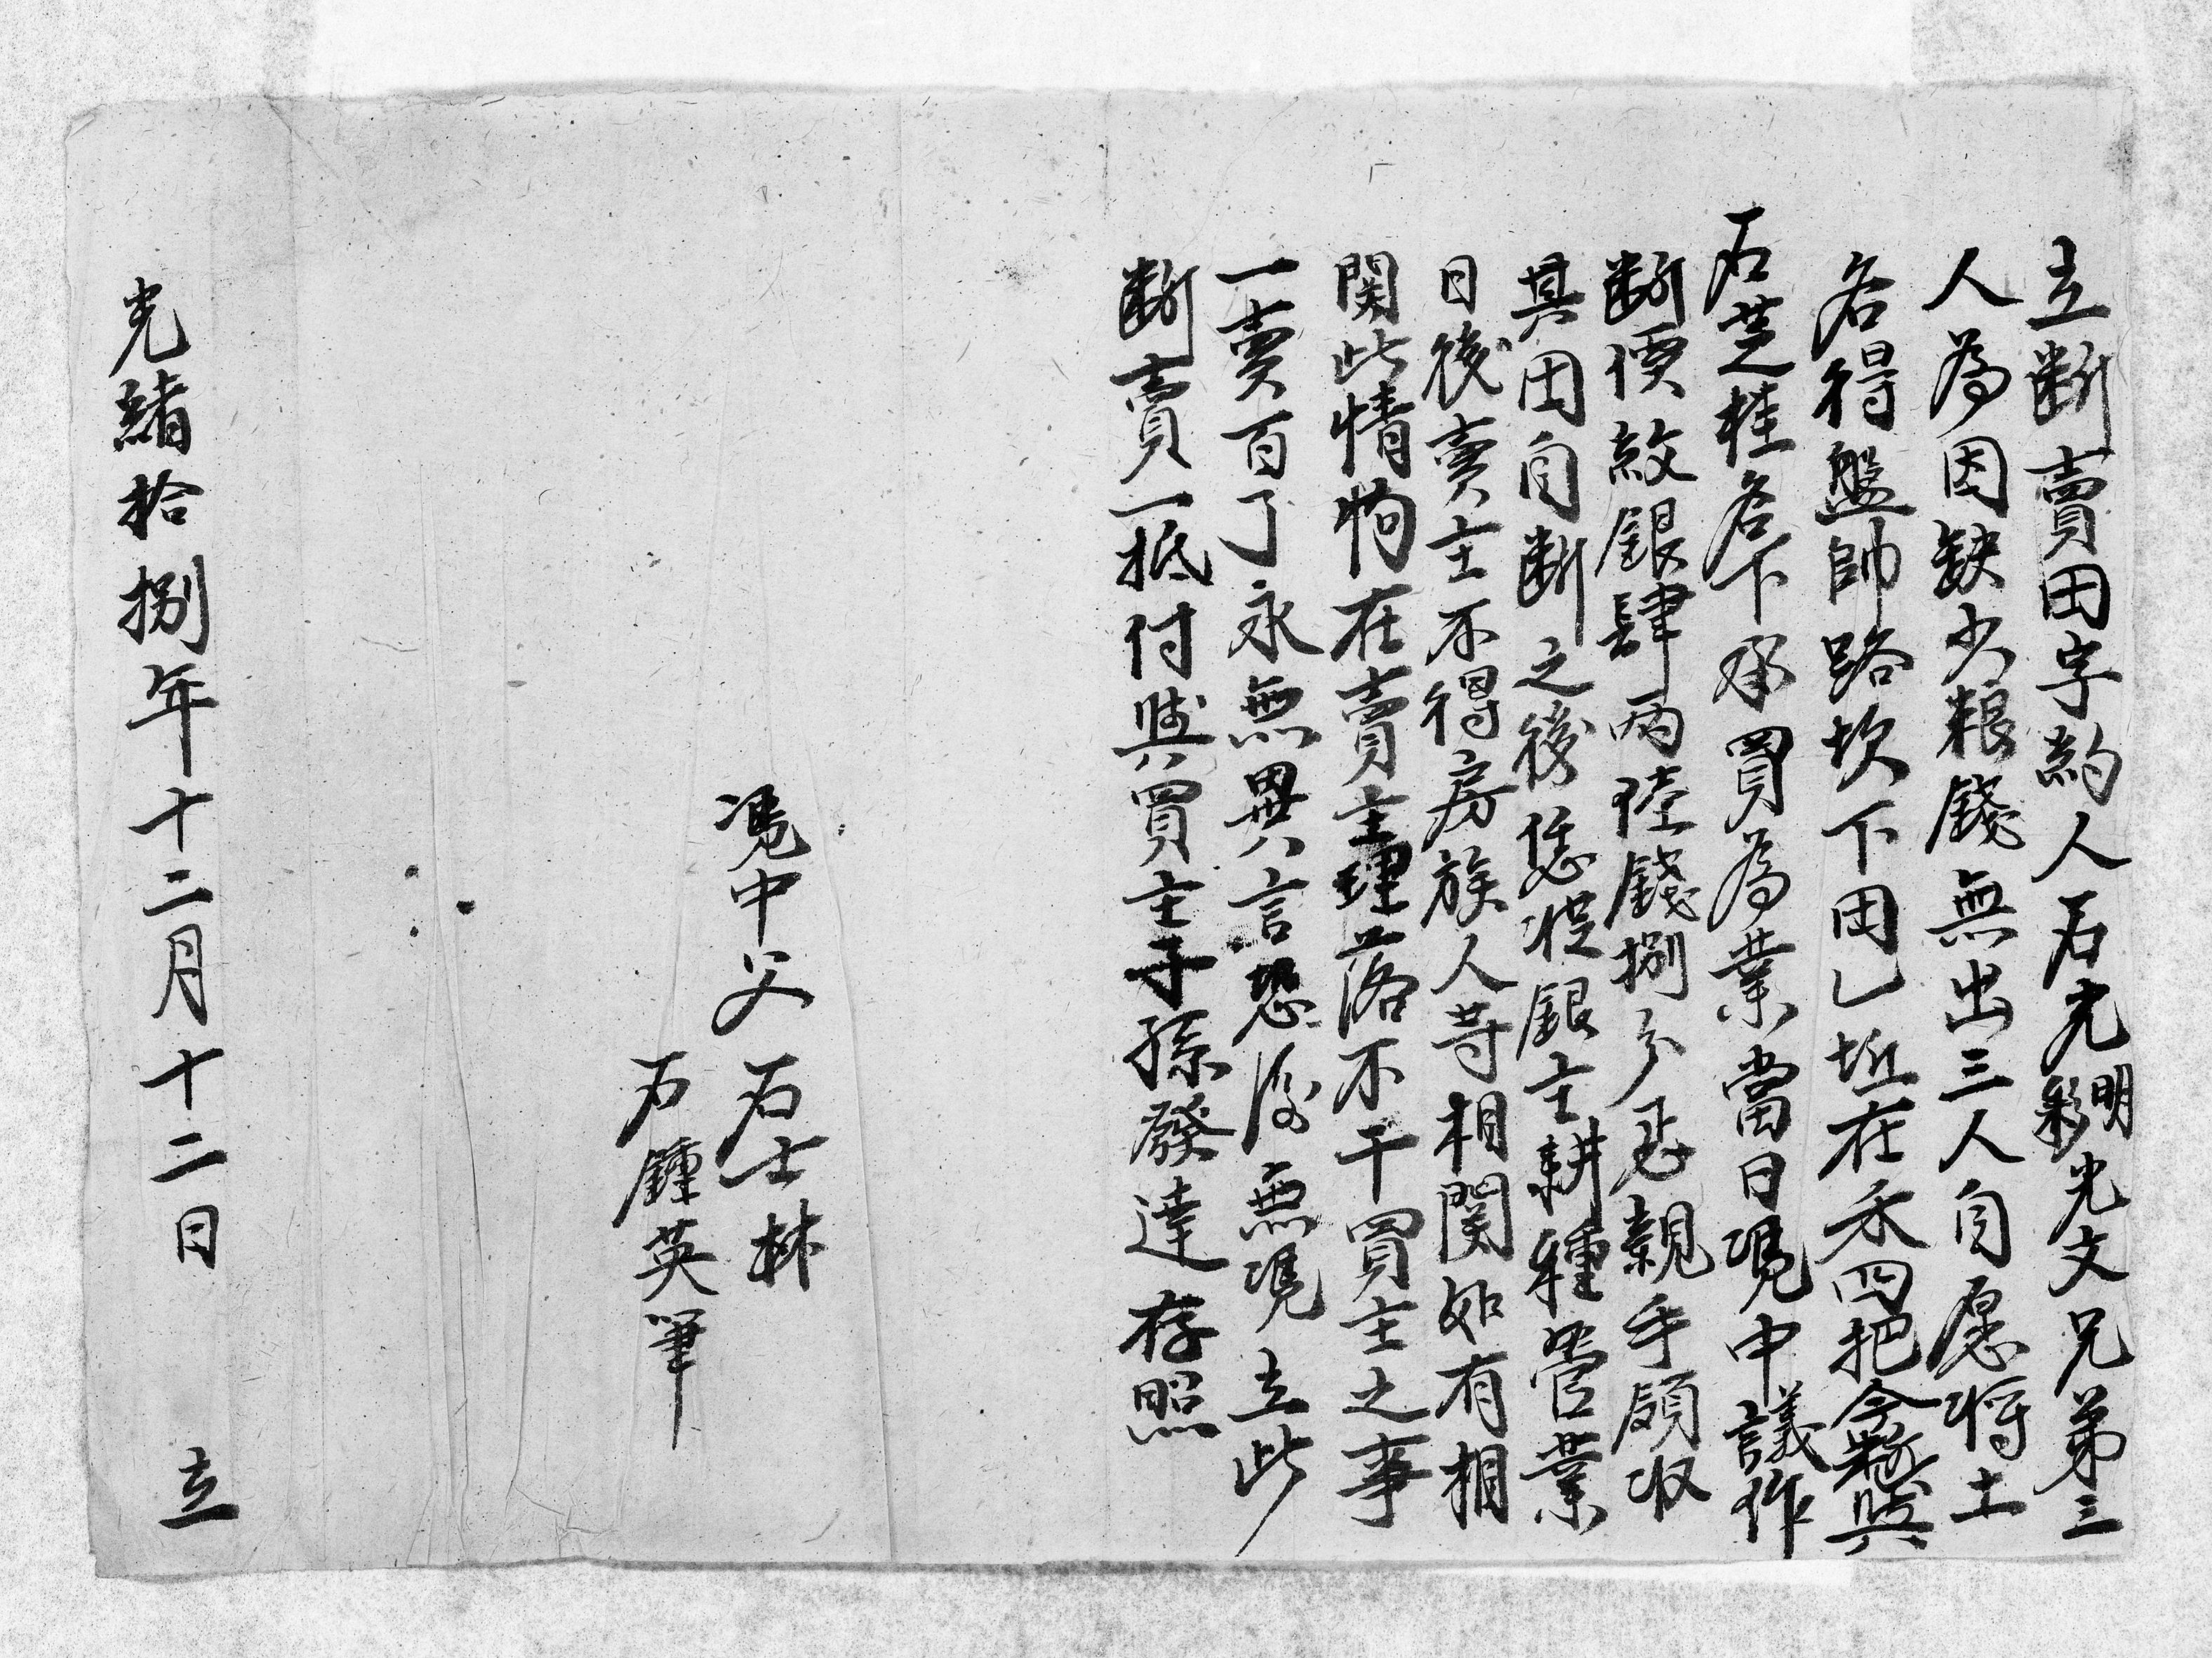 立斷賣田字約人石光明彩光文兄弟三
人為因缺少粮錢無出三人自愿将土
名得盤帥路坎下田乚坵在禾四把今斷與
石芝桂名下承買為業當日憑中議作
斷價紋銀肆両陸錢捌分正親手領收
其田自斷之後恁從銀主耕種管業
日後賣主不得房族人等相関如有相
関此情拘在賣主理落不干買主之事
一賣百了永無異言恐後無憑立此
斷賣一抵付與買主子孫發達存照
憑中父石士林
石鍾英筆
光緒拾捌年十二月十二日 立